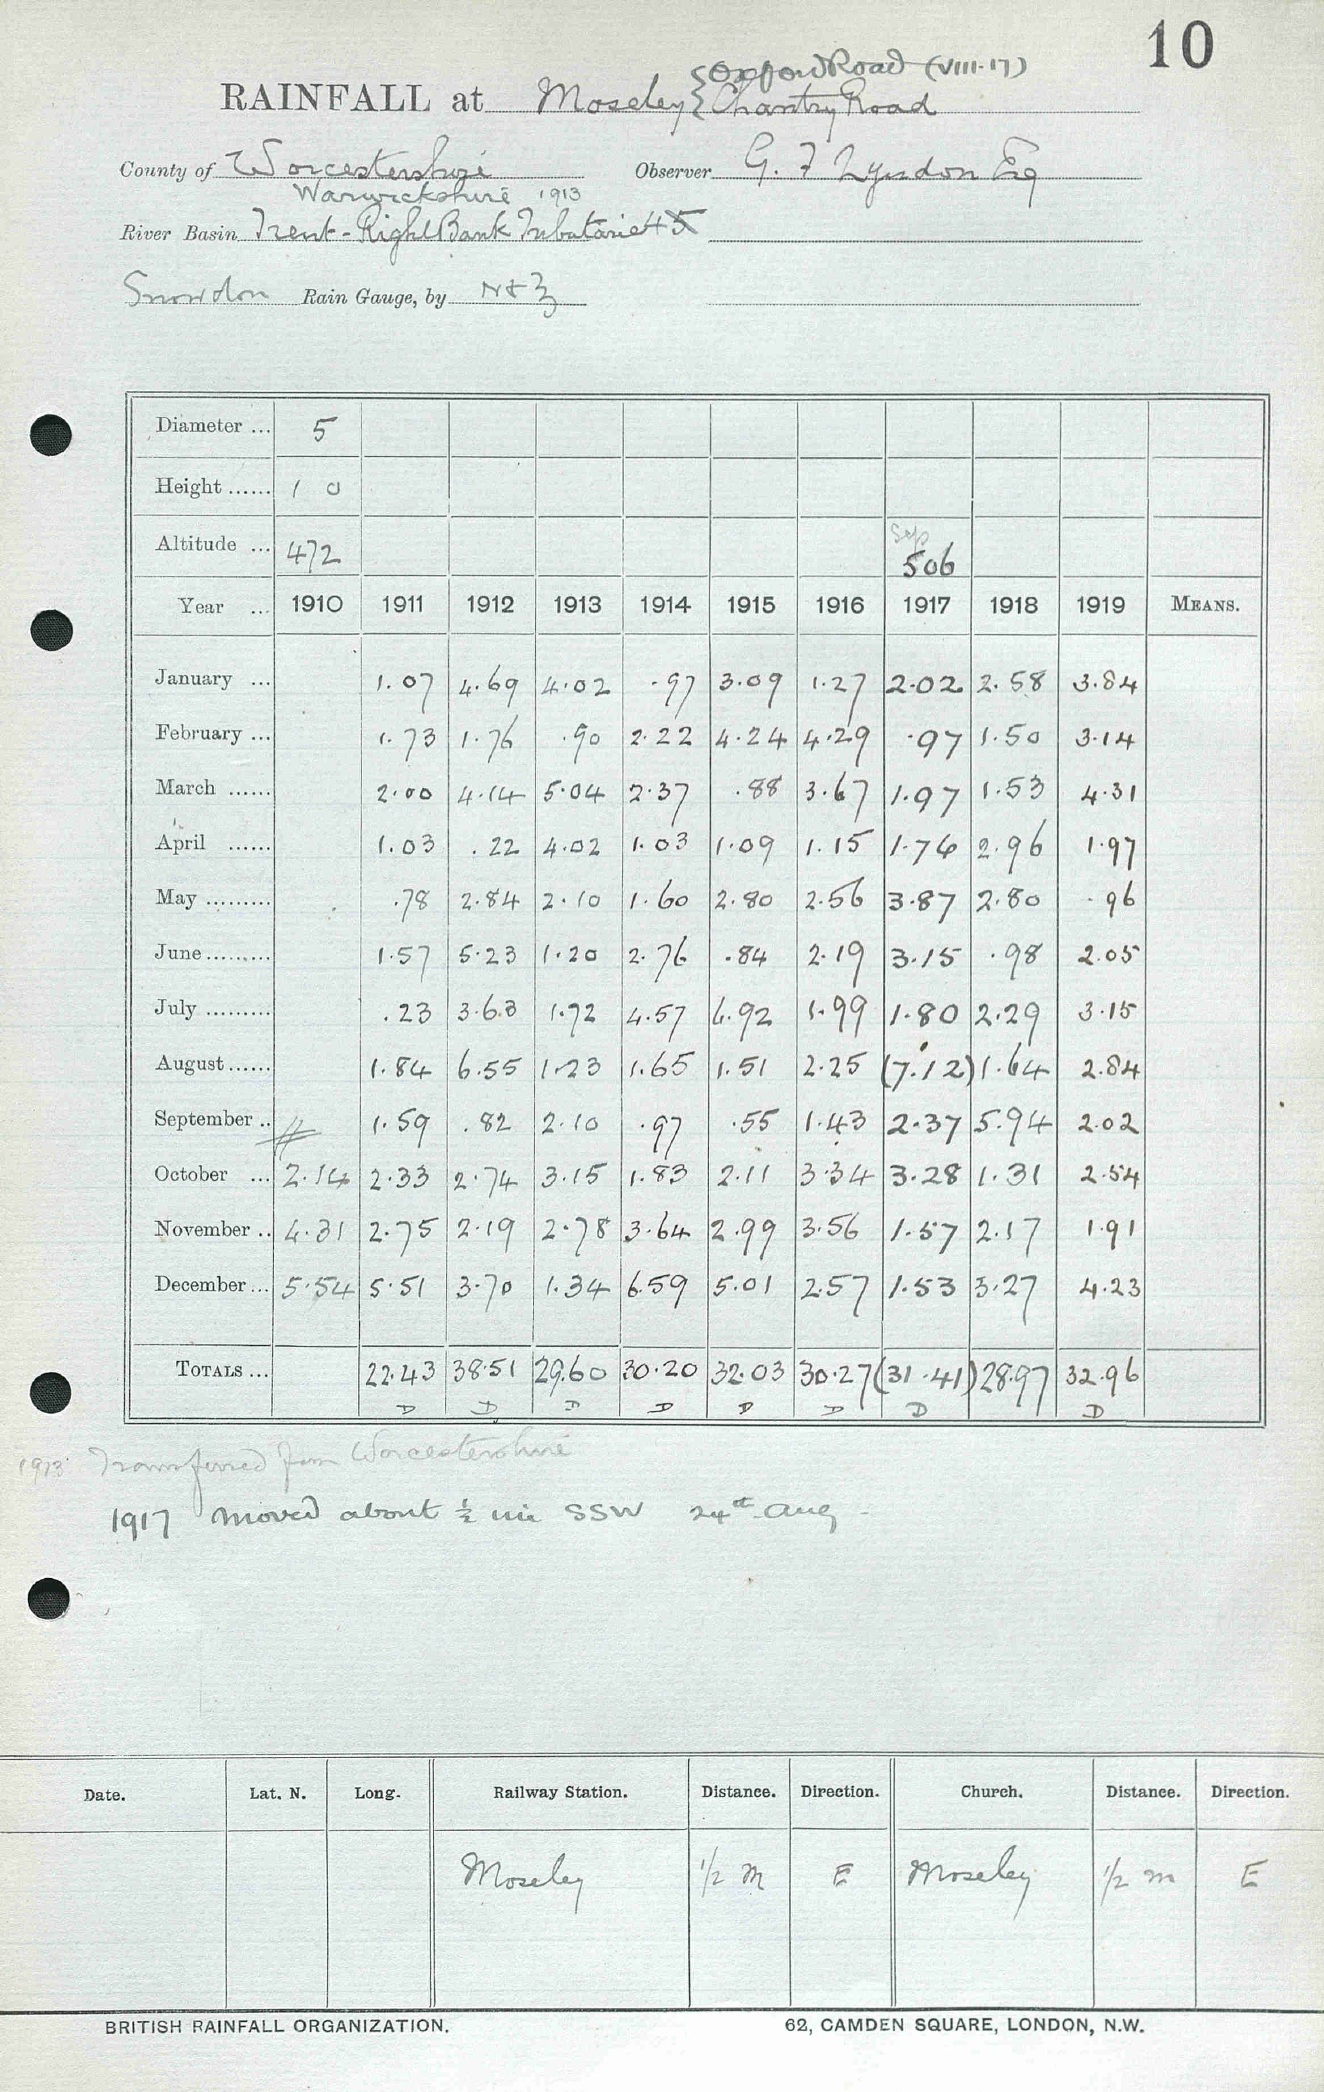 10
Oxford Road (VIII.17)
RAINFALL at Moseley { Chantry Road
County of Worcestershire Observer G. F Lyndon Esq
Warwickshire 1913
River Basin Trent - Right Bank Tributaries
Snowdon Rain Gauge, by N & Z
Diameter ... 5
Height ...... 1 0
Sep
Altitude ... 472 506
Year ... 1910 1911 1912 1913 1914 1915 1916 1917 1918 1919 MEANS.
January ... 1.07 4.69 4.02 .97 3.09 1.27 2.02 2.58 3.84
February ... 1.73 1.76 .90 2.22 4.24 4.29 .97 1.50 3.14
March ...... 2.00 4.14 5.04 2.37 .88 3.67 1.97 1.53 4.31
April ...... 1.03 .22 4.02 1.03 1.09 1.15 1.76 2.96 1.97
May ......... .78 2.84 2.10 1.60 2.80 2.56 3.87 2.80 .96
June ......... 1.57 5.23 1.20 2.76 .84 2.19 3.15 .98 2.05
July ......... .23 3.63 1.72 4.57 6.92 1.99 1.80 2.29 3.15
August ...... 1.84 6.55 1.23 1.65 1.51 2.25 (7.12) 1.64 2.84
September .. 1.59 .82 2.10 .97 .55 1.43 2.37 5.94 2.02
October ... 2.14 2.33 2.74 3.15 1.83 2.11 3.34 3.28 1.31 2.54
November .. 4.31 2.75 2.19 2.78 3.64 2.99 3.56 1.57 2.17 1.91
December ... 5.54 5.51 3.70 1.34 6.59 5.01 2.57 1.53 3.27 4.23
TOTALS ... 22.43 38.51 29.60 30.20 32.03 30.27 (31.41) 28.97 32.96
D D D D D D D D
1913 Transferred from Worcestershire
1917 Moved about ½ mi SSW 24th Aug
Date. Lat. N. Long. Railway Station. Distance. Direction. Church. Distance. Direction.
Moseley 1/2 m E Moseley 1/2 m E
BRITISH RAINFALL ORGANIZATION. 62, CAMDEN SQUARE, LONDON, N.W.